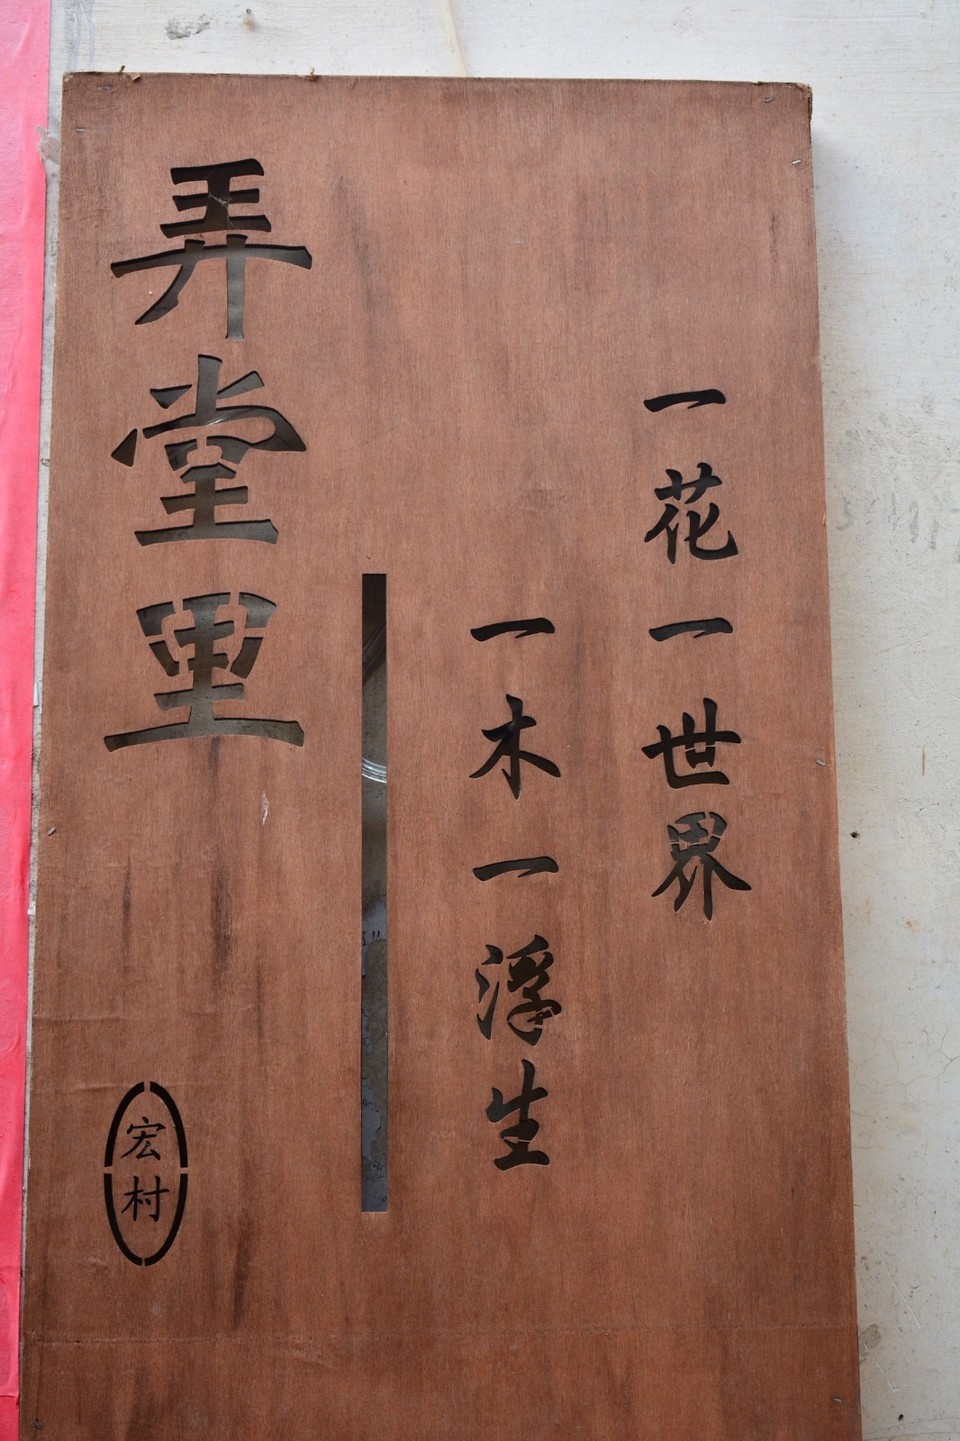 一花一世界
一木一浮生
弄堂里
宏村